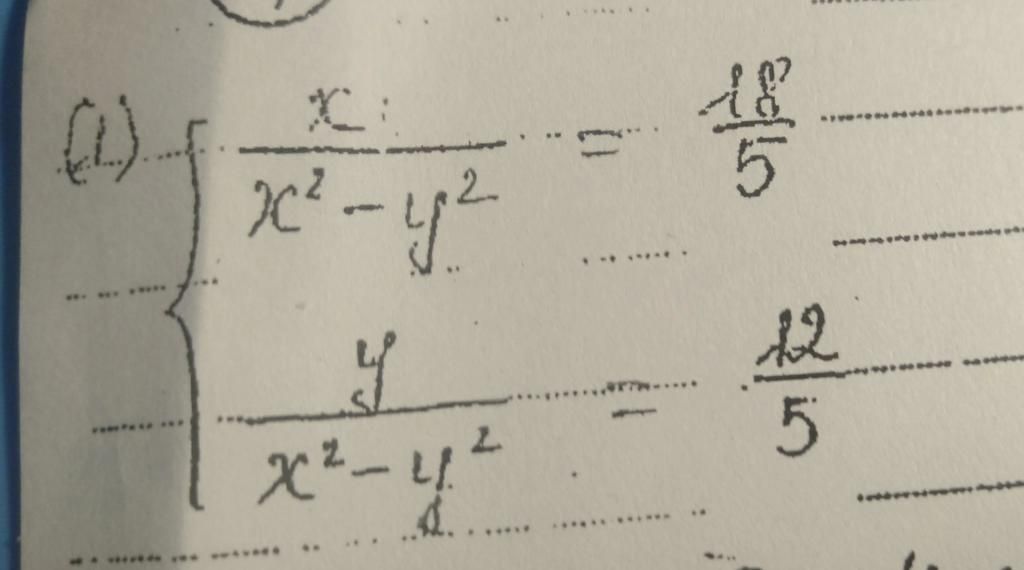 (1) { x / (x² - y²) = 18/5
y / (x² - y²) = 12/5